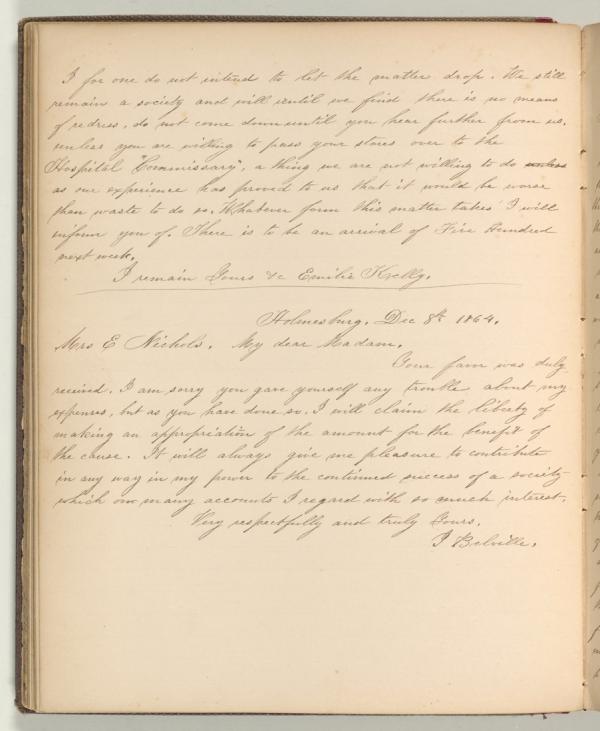 I for one do not intend to let the matter drop. We still
remain a society and will until we find there is no means
of redress. do not come down until you hear further from us.
unless you are willing to pass your stores over to the
Hospital "Commissary", a thing we are not willing to do unless
as our experience has proved to us that it would be worse
than waste to do so. Whatever form this matter takes I will
inform you of. There is to be an arrival of Five Hundred
next week.
I remain Yours &c Emilie Kelly.
Holmesburg. Dec 8th 1864.
Mrs E Nichols. My dear Madam.
Your favor was duly
received. I am sorry you gave yourself any trouble about my
expenses, but as you have done so. I will claim the liberty of
making an appropriation of the amount for the benefit of
the cause. It will always give me pleasure to contribute
in any way in my power to the continued success of a society
which on many accounts I regard with so much interest.
Very respectfully and truly Yours.
J Belville.